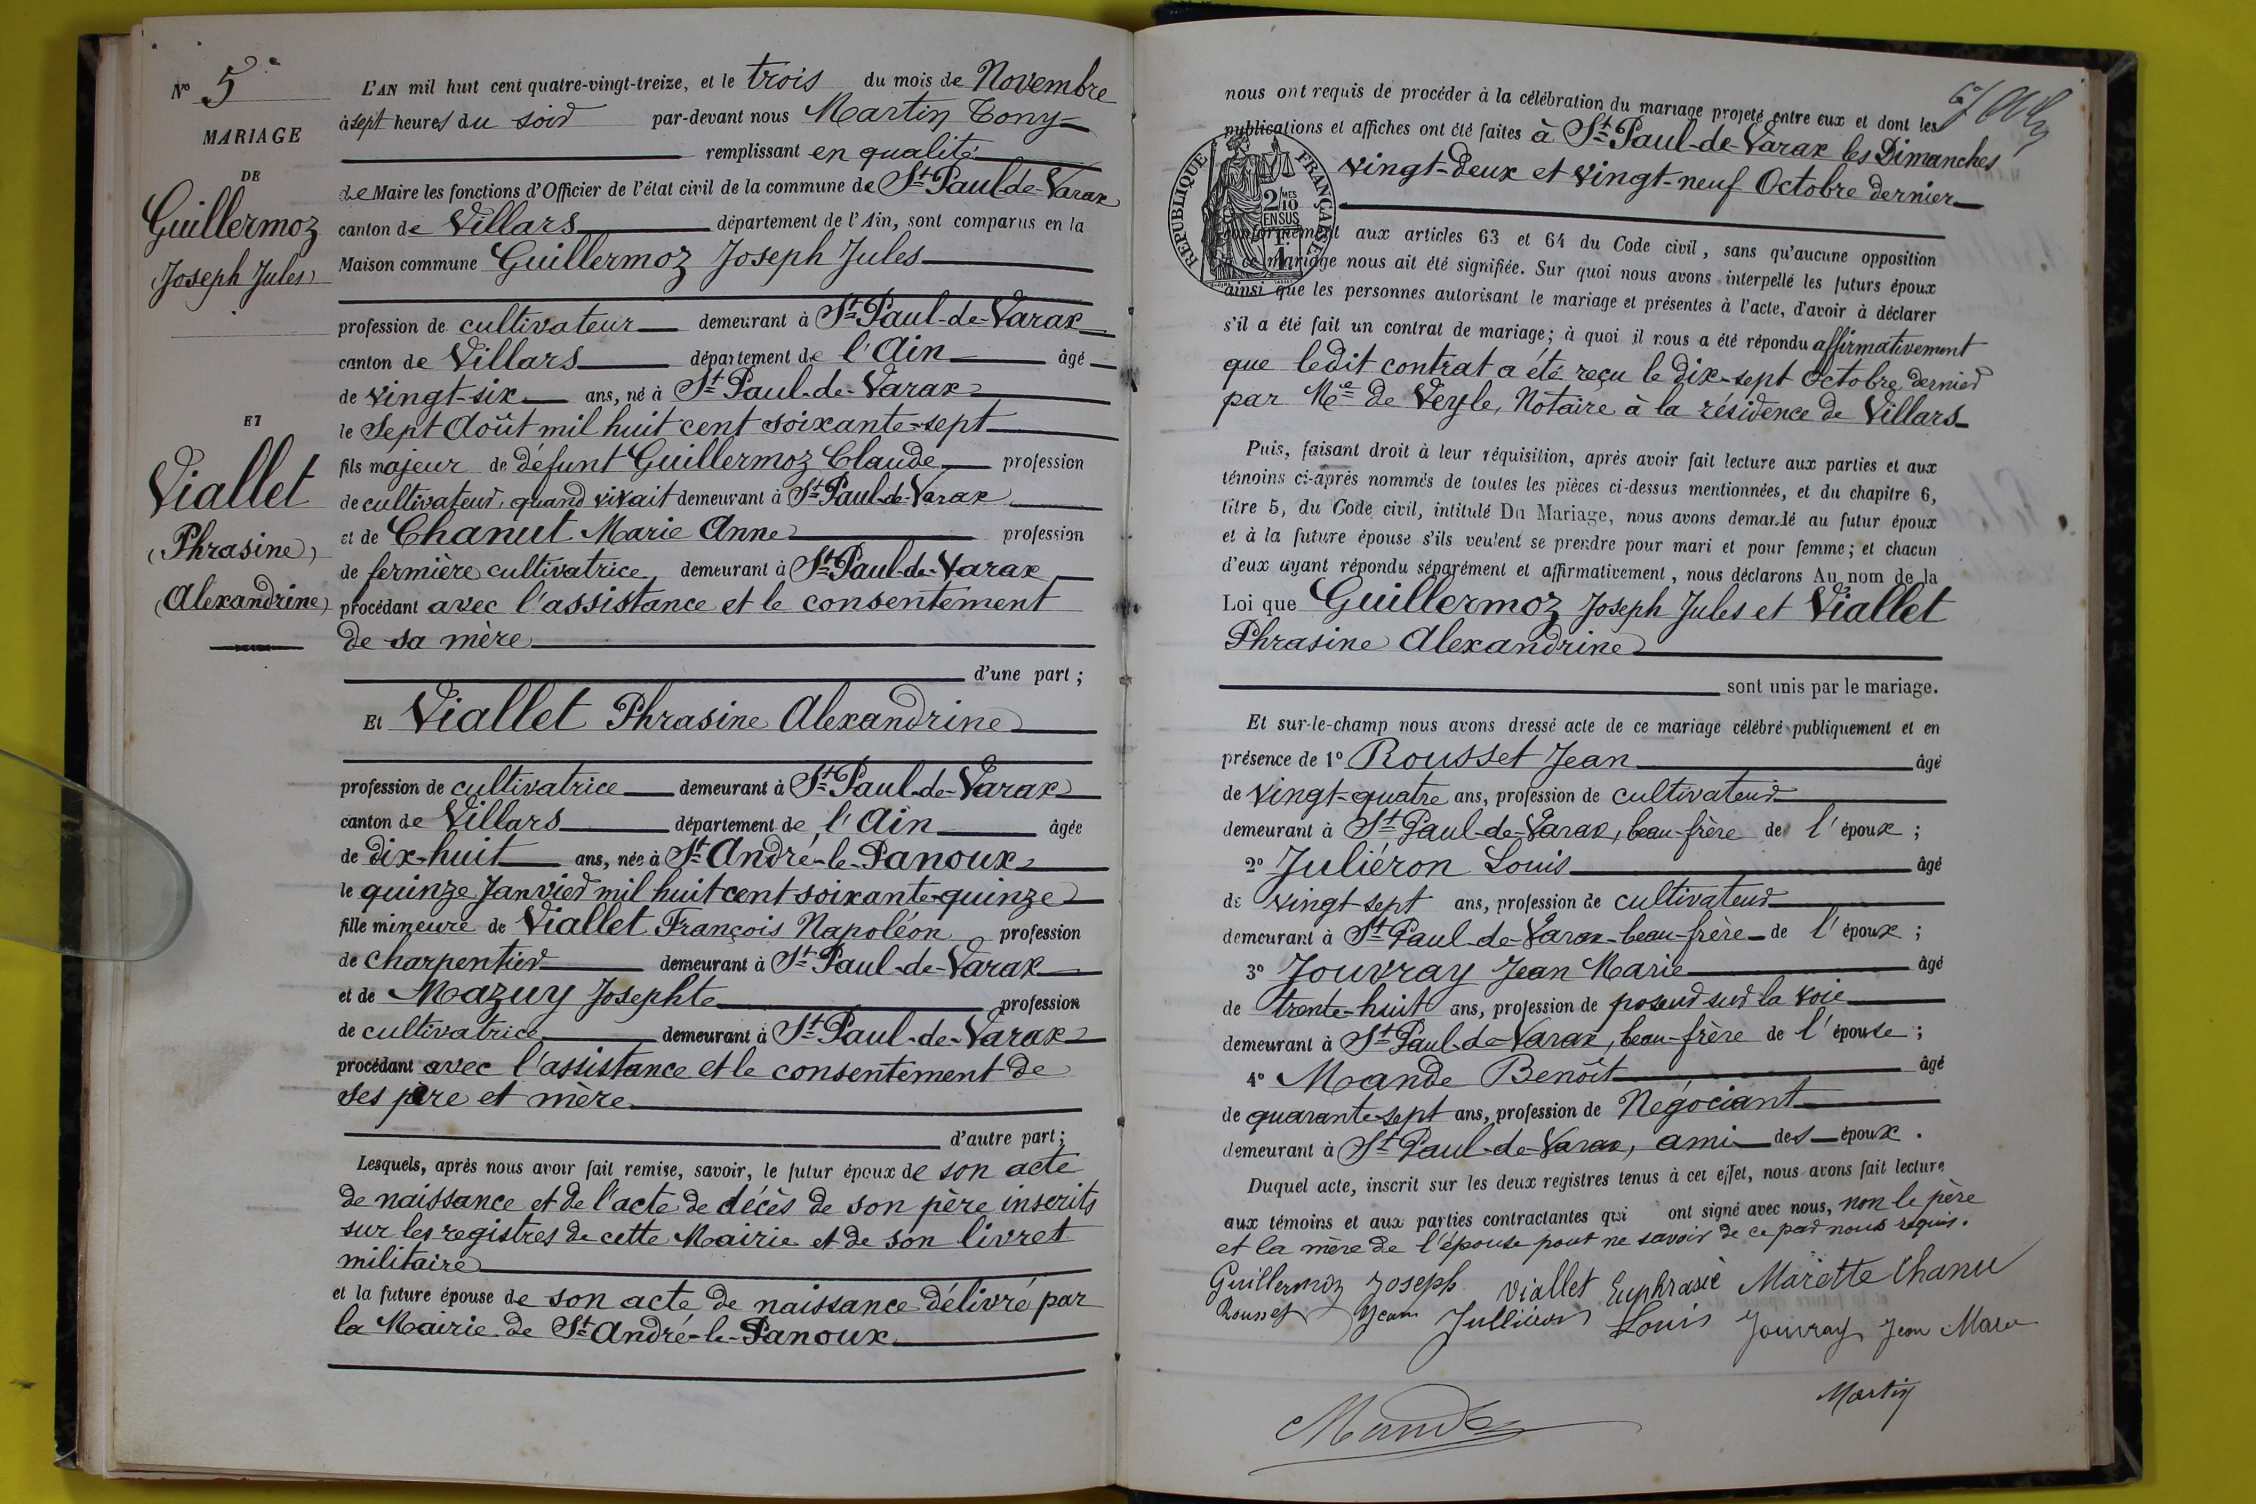 N° 5e
MARIAGE
DE
Guillermoz
(Joseph Jules)
ET
Viallet
(Phrasine)
(Alexandrine)
L'AN mil huit cent quatre-vingt-treize, et le trois du mois de Novembre
à sept heures du soir par-devant nous Martin Tony
remplissant en qualité
de Maire les fonctions d'Officier de l'état civil de la commune de St Paul-de-Varax
canton de Villars département de l'Ain, sont comparus en la
Maison commune Guillermoz Joseph Jules
profession de cultivateur demeurant à St Paul-de-Varax
canton de Villars département de l'Ain âgé
de vingt-six ans, né à St Paul-de-Varax
le Sept Août mil huit cent soixante-sept
fils majeur de défunt Guillermoz Claude profession
de cultivateur, quand vivait demeurant à St Paul-de-Varax
et de Chanut Marie Anne profession
de fermière cultivatrice demeurant à St Paul-de-Varax
procédant avec l'assistance et le consentement
de sa mère
d'une part ;
Et Viallet Phrasine Alexandrine
profession de cultivatrice demeurant à St Paul-de-Varax
canton de Villars département de l'Ain âgée
de dix-huit ans, née à St André-le-Panoux
le quinze Janvier mil huit cent soixante-quinze
fille mineure de Viallet François Napoléon profession
de charpentier demeurant à St Paul-de-Varax
et de Mazuy Josephte profession
de cultivatrice demeurant à St Paul-de-Varax
procédant avec l'assistance et le consentement de
ses père et mère
d'autre part ;
Lesquels, après nous avoir fait remise, savoir, le futur époux de son acte
de naissance et de l'acte de décès de son père inscrits
sur les registres de cette Mairie et de son livret
militaire
et la future épouse de son acte de naissance délivré par
la Mairie de St André-le-Panoux
nous ont requis de procéder à la célébration du mariage projeté entre eux et dont les
publications et affiches ont été faites à St Paul-de-Varax les Dimanches
vingt-deux et vingt-neuf Octobre dernier
RÉPUBLIQUE FRANÇAISE
2 MES
10
EN SUS
conformément aux articles 63 et 64 du Code civil, sans qu'aucune opposition
à ce mariage nous ait été signifiée. Sur quoi nous avons interpellé les futurs époux
ainsi que les personnes autorisant le mariage et présentes à l'acte, d'avoir à déclarer
s'il a été fait un contrat de mariage ; à quoi il nous a été répondu affirmativement
que ledit contrat a été reçu le dix-sept Octobre dernier
par Me de Veyle, Notaire à la résidence de Villars
Puis, faisant droit à leur réquisition, après avoir fait lecture aux parties et aux
témoins ci-après nommés de toutes les pièces ci-dessus mentionnées, et du chapitre 6,
titre 5, du Code civil, intitulé Du Mariage, nous avons demandé au futur époux
et à la future épouse s'ils veulent se prendre pour mari et pour femme ; et chacun
d'eux ayant répondu séparément et affirmativement, nous déclarons Au nom de la
Loi que Guillermoz Joseph Jules et Viallet
Phrasine Alexandrine
sont unis par le mariage.
Et sur-le-champ nous avons dressé acte de ce mariage célébré publiquement et en
présence de 1° Rousset Jean âgé
de vingt-quatre ans, profession de cultivateur
demeurant à St Paul-de-Varax, beau-frère de l'époux ;
2° Juliéron Louis âgé
de vingt-sept ans, profession de cultivateur
demeurant à St Paul-de-Varax-beau-frère de l'époux ;
3° Jouvray Jean Marie âgé
de trente-huit ans, profession de poseur sur la voie
demeurant à St Paul-de-Varax, beau-frère de l'épouse ;
4° Mande Benoît âgé
de quarante-sept ans, profession de Négociant
demeurant à St Paul-de-Varax, ami des époux.
Duquel acte, inscrit sur les deux registres tenus à cet effet, nous avons fait lecture
aux témoins et aux parties contractantes qui ont signé avec nous, non le père
et la mère de l'épouse pour ne savoir de ce par nous requis.
Guillermoz Joseph Viallet Euphrasie Mariette Chanu
Rousset Jean Julliéron Louis Jouvray Jean Marie
Martin
Mande